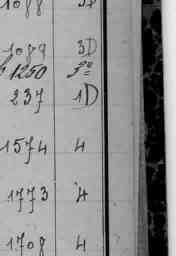 1088 3D
1089 3D
1250 3º
237 1D
1574 4
1773 4
1708 4